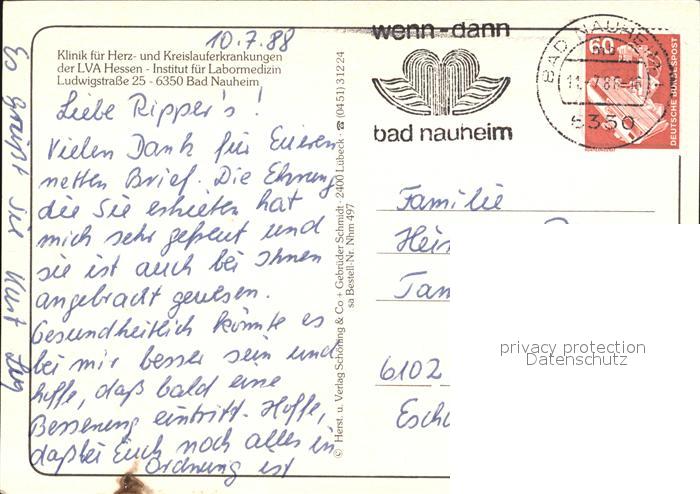 10.7.88
Klinik für Herz- und Kreislauferkrankungen
der LVA Hessen - Institut für Labormedizin
Ludwigstraße 25 - 6350 Bad Nauheim
Liebe Ripper's!
Vielen Dank für Eueren
netten Brief. Die Ehrung
die Sie erhielten hat
mich sehr gefreut und
sie ist auch bei Ihnen
angebracht gewesen.
Gesundheitlich könnte es
bei mir besser sein und
hoffe, daß bald eine
Besserung eintritt. Hoffe,
daß bei Euch noch alles in
Ordnung ist
Es grüßt Sie Kurt
© Herst. u. Verlag Schöning & Co + Gebrüder Schmidt · 2400 Lübeck · ☎ (0451) 31224
sa Bestell-Nr. Nhm 497
wenn - dann
bad nauheim
BAD NAUHEIM
6350
60
DEUTSCHE BUNDESPOST
Familie
6102
privacy protection
Datenschutz